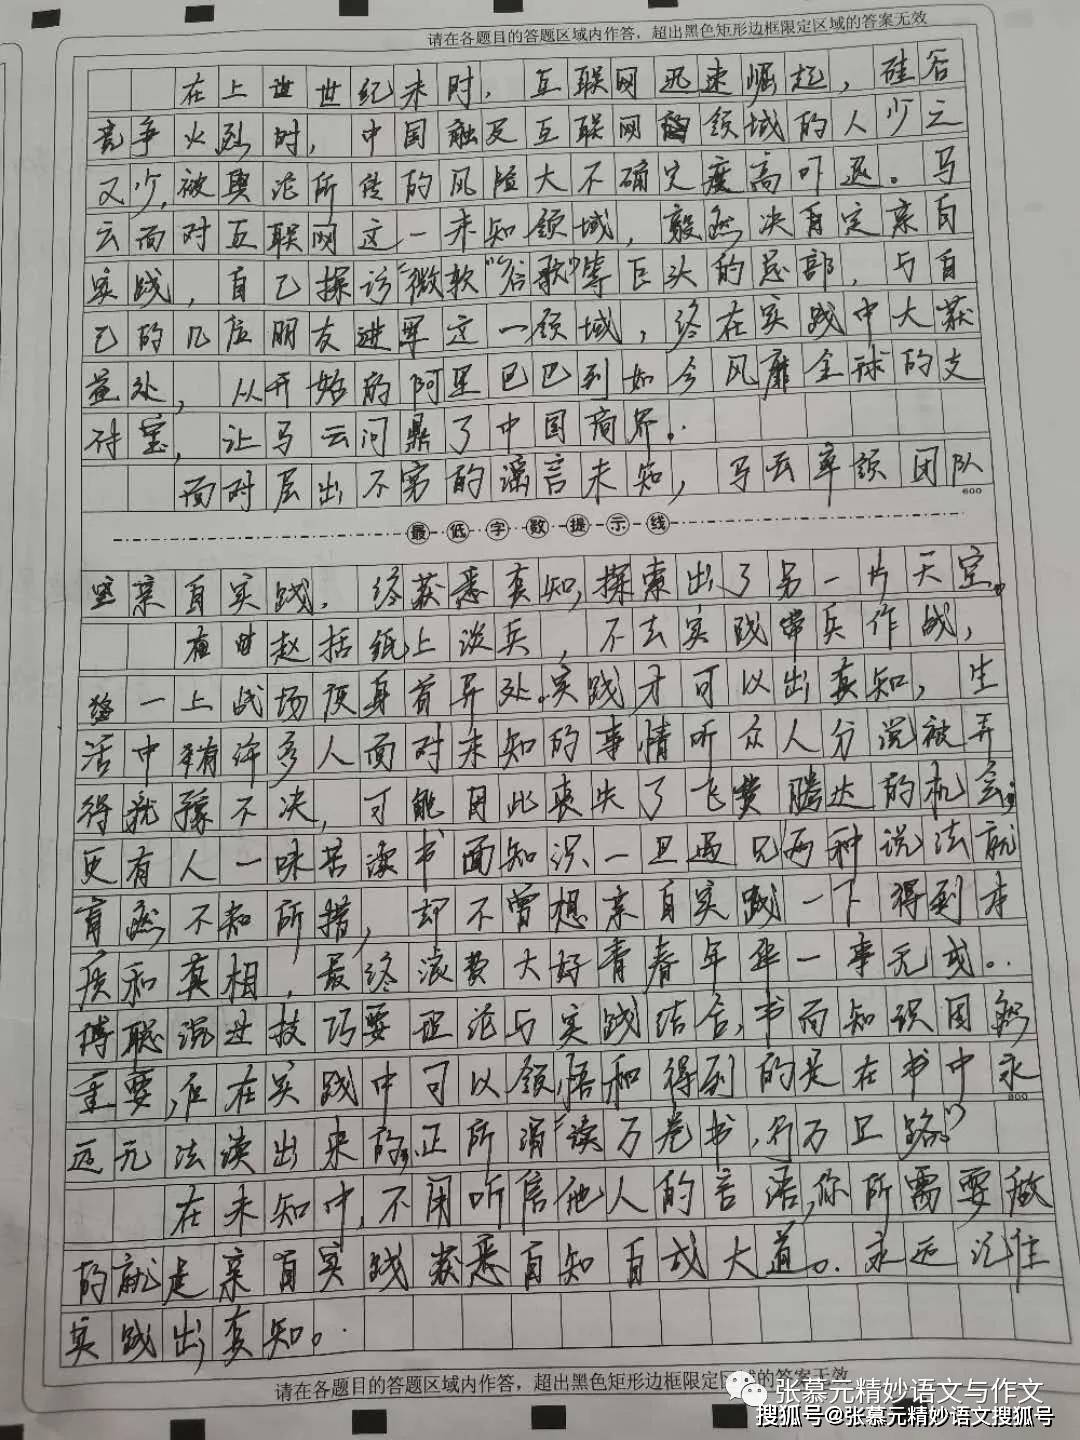 请在各题目的答题区域内作答，超出黑色矩形边框限定区域的答案无效
在上世世纪末时，互联网迅速崛起，硅谷
竞争火烈时，中国融及互联网的领域的人少之
又少，被舆论所传的风险大不确定度高吓退。马
云面对互联网这一未知领域，毅然决定亲自
实践，自己探访“微软”“谷歌”等巨头的总部，与自
己的几位朋友进军这一领域，终在实践中大获
益处，从开始的阿里巴巴到如今风靡全球的支
付宝，让马云问鼎了中国商界。
面对层出不穷的谣言未知，马云率领团队
600
最低字数提示线
亲自实践，终获悉真知，探索出了另一片天空。
有时赵括纸上谈兵，不去实践带兵作战，
一上战场便身首异处。实践才可以出真知，生
活中有许多人面对未知的事情听众人分说被弄
得犹豫不决，可能因此丧失了飞黄腾达的机会；
更有人一味苦读书面知识、一旦遇见两种说法就
盲然不知所措，却不曾想亲自实践一下得到本
质和真相，最终浪费大好青春年华一事无成。
傅聪说过技巧要理论与实践结合，书面知识固然
重要，但在实践中可以领悟和得到的是在书中永
800
远无法读出来的，正所谓“读万卷书，行万里路。”
在未知中，不用听信他人的言语，你所需要做
的就是亲自实践获悉真知自成大道。永远记住
实践出真知。
请在各题目的答题区域内作答，超出黑色矩形边框限定区域的答案无效
张慕元精妙语文与作文
搜狐号@张慕元精妙语文搜狐号